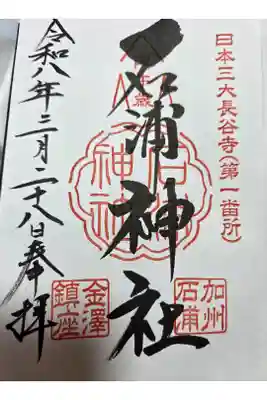 日本三大長谷寺(第一番所)
加州
石浦
石浦神社
石浦
神社
金澤
鎮座
令和八年三月二十八日奉拝